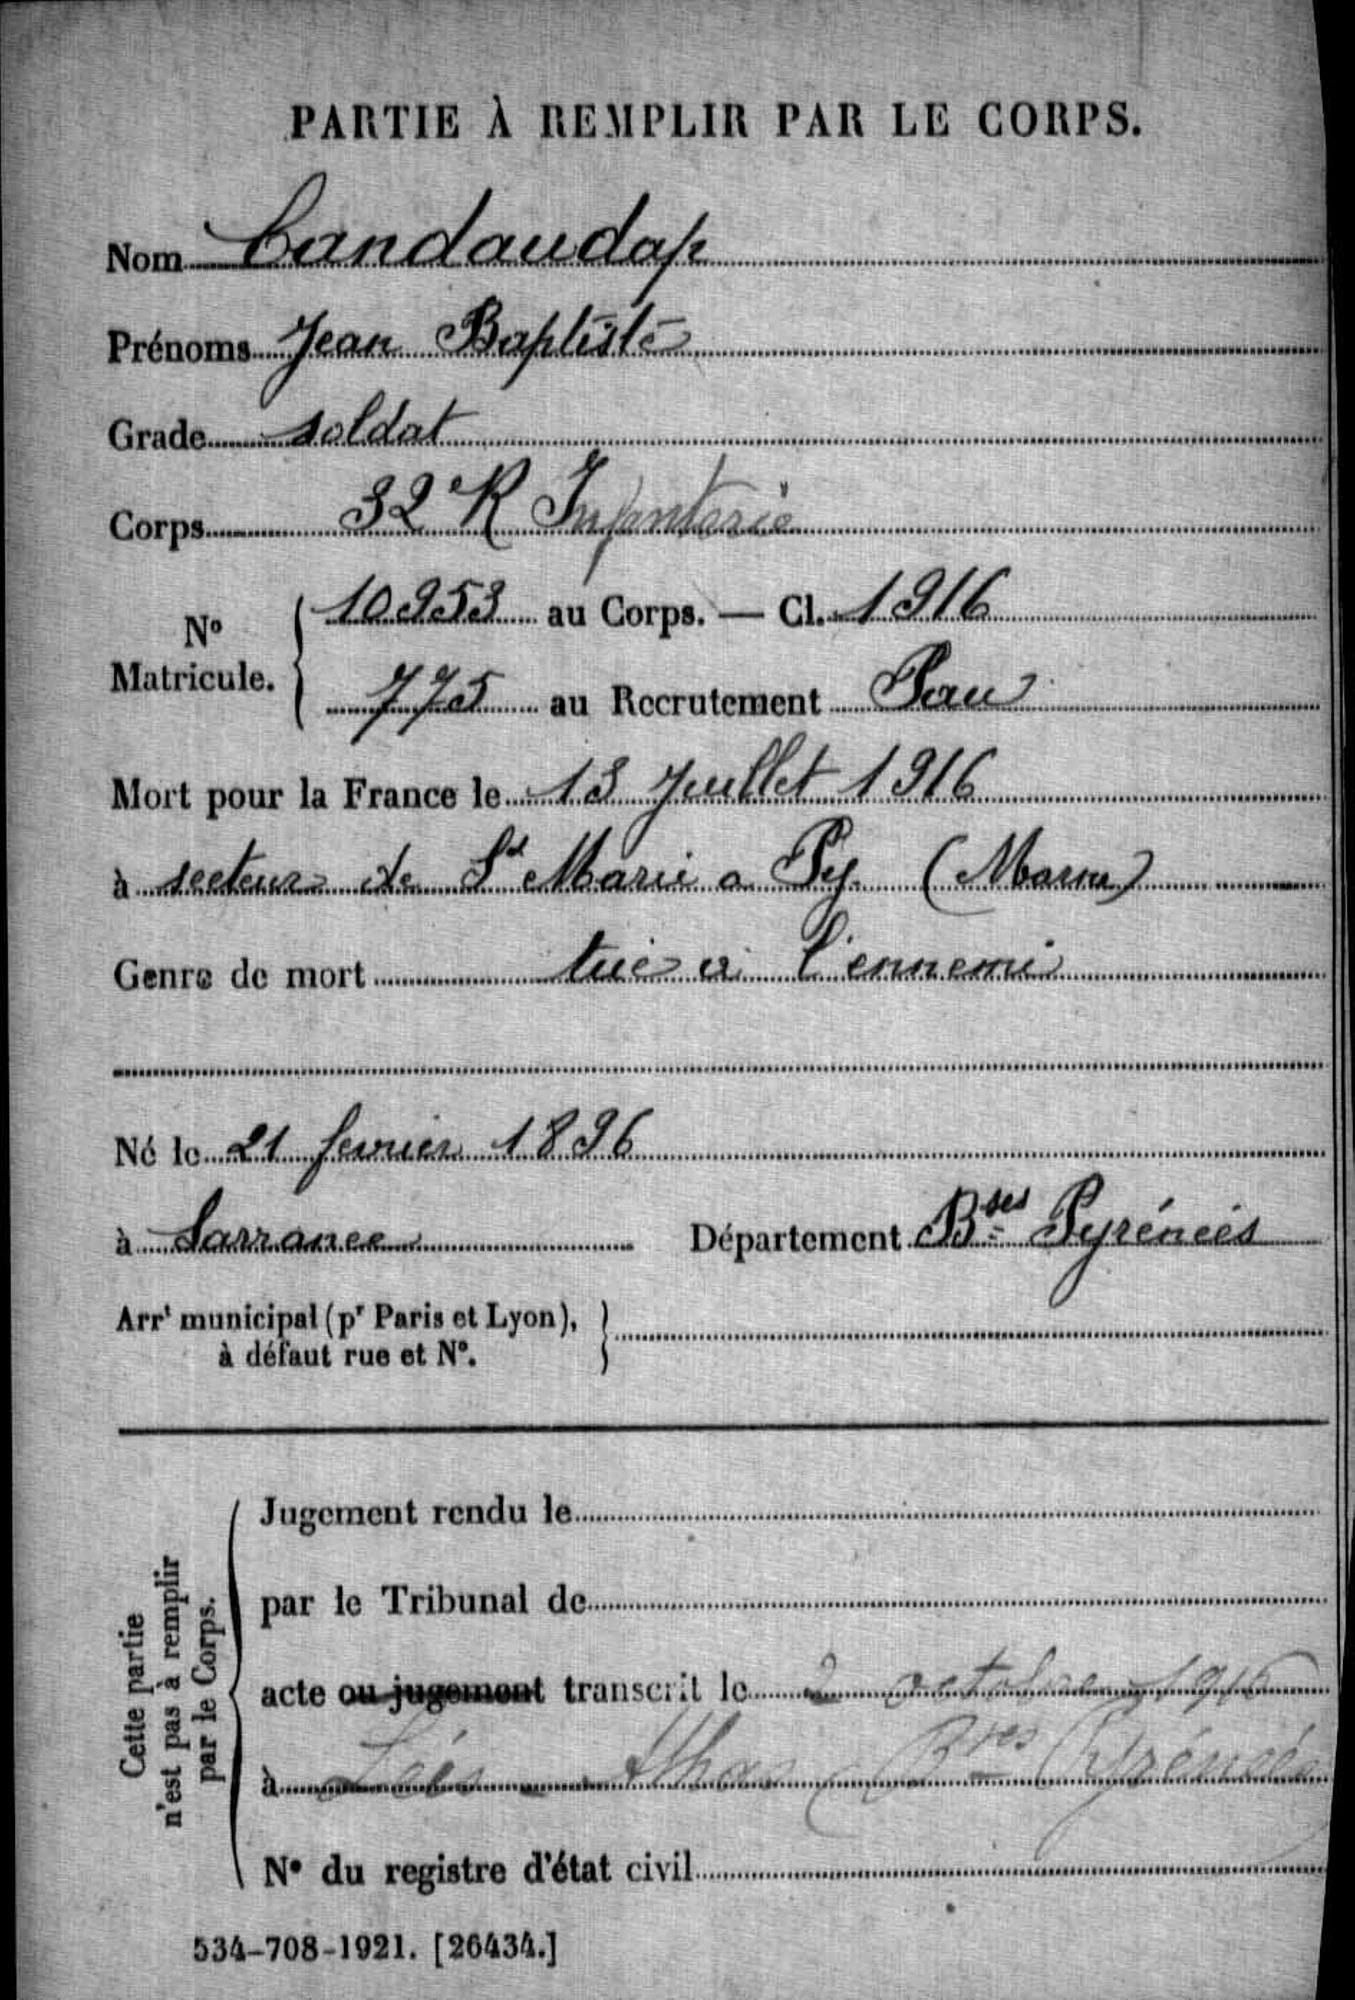 PARTIE À REMPLIR PAR LE CORPS.
Nom Candaudap
Prénoms Jean Baptiste
Grade soldat
Corps 32e R Infanterie
No Matricule. 10953 au Corps. — Cl. 1916
775 au Recrutement Pau
Mort pour la France le 13 Juillet 1916
à secteur de St Marie a Py (Marne)
Genre de mort tué à l'ennemi
Né le 21 fevrier 1896
à Sarrance Département Bses Pyrénées
Arrt municipal (pr Paris et Lyon),
à défaut rue et No.
Cette partie
n'est pas à remplir
par le Corps.
Jugement rendu le
par le Tribunal de
acte ou jugement transcrit le 2 octobre 1916
à Léés - Athas (Bses Pyrénées)
No du registre d'état civil
534-708-1921. [26434.]